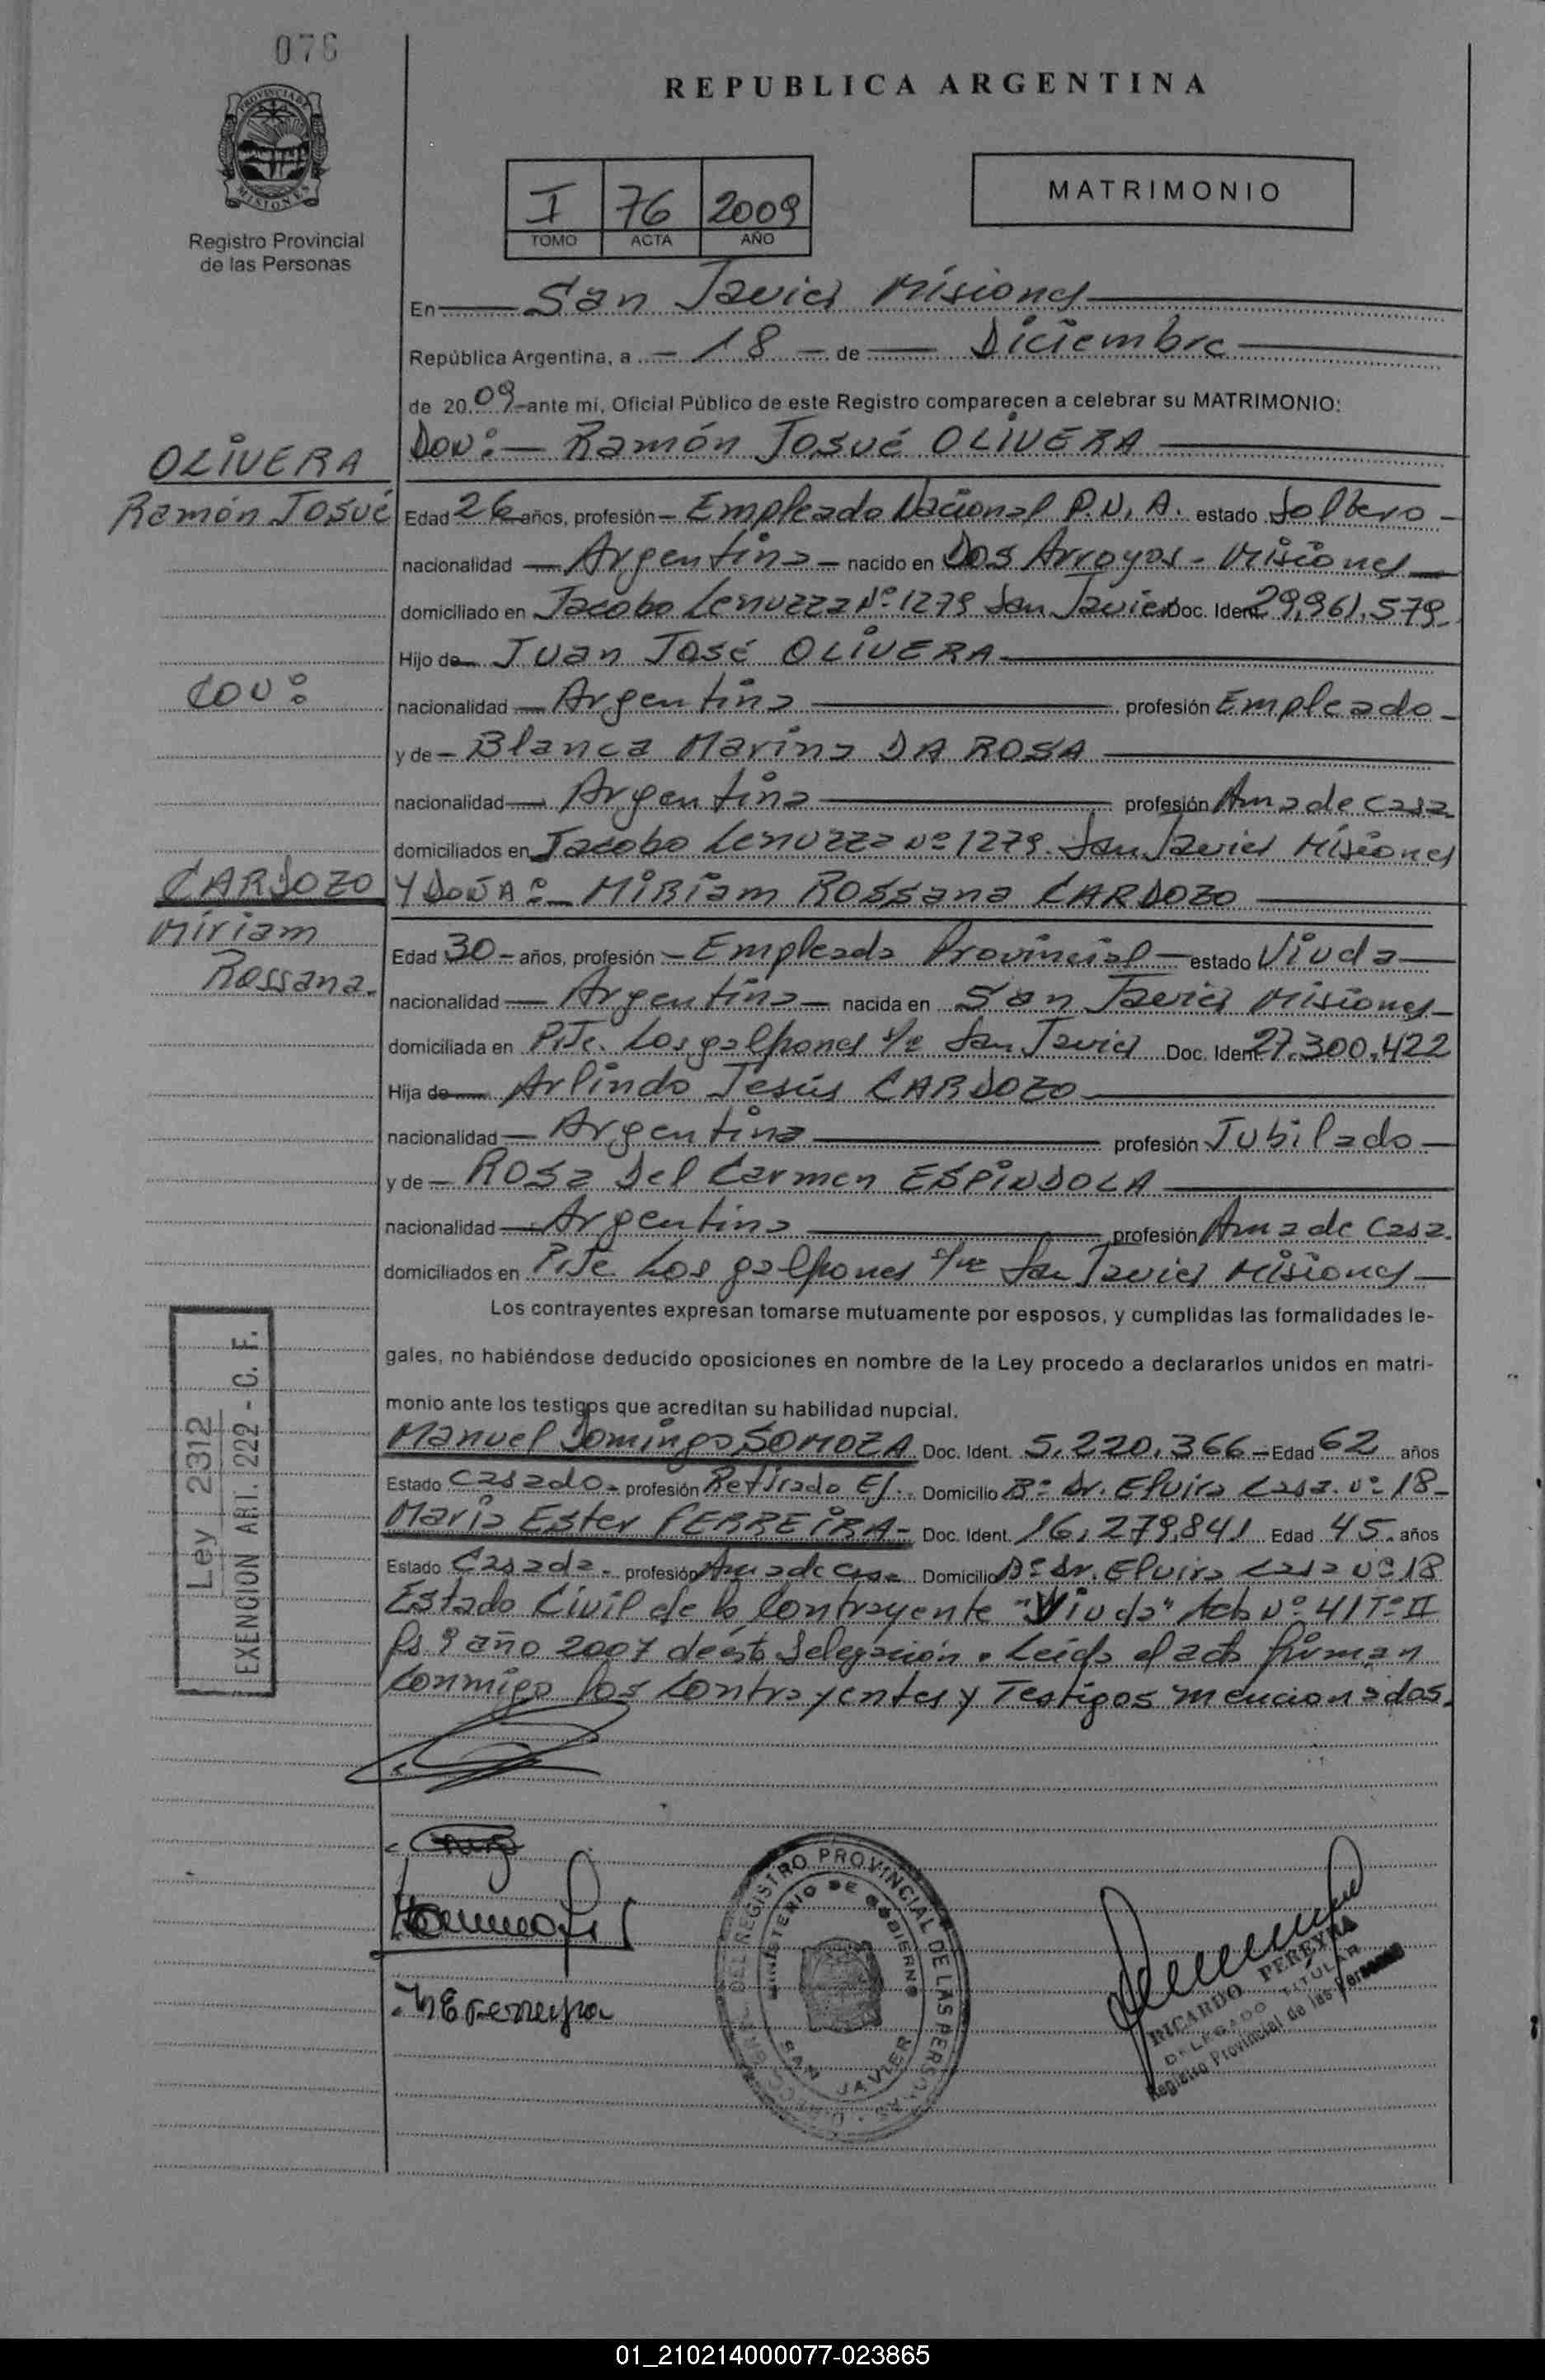 076
REPUBLICA ARGENTINA
PROVINCIA DE
MISIONES
Registro Provincial
de las Personas
I 76 2009
TOMO ACTA AÑO
MATRIMONIO
En San Javier Misiones
República Argentina, a - 18 - de Diciembre
de 20 09 ante mí, Oficial Público de este Registro comparecen a celebrar su MATRIMONIO:
OLIVERA
Ramón Josué
Con:
CARDOZO
Miriam
Rossana.
Don:- Ramón Josué OLIVERA
Edad 26 años, profesión - Empleado Nacional P.N.A. estado Soltero -
nacionalidad Argentina - nacido en Dos Arroyos - Misiones
domiciliado en Jacobo Lenuzza Nº 1279 San Javier Doc. Ident. 29.961.579
Hijo de Juan José OLIVERA
nacionalidad Argentina profesión Empleado -
y de - Blanca Marina DA ROSA
nacionalidad Argentina profesión Ama de Casa
domiciliados en Jacobo Lenuzza nº 1279 San Javier Misiones
Y DOÑA:- MiRiam Rossana CARDOZO
Edad 30 - años, profesión - Empleada Provincial - estado Viuda
nacionalidad Argentina - nacida en San Javier Misiones
domiciliada en Pje. Los galpones s/n San Javier Doc. Ident. 27.300.422
Hija de Arlindo Jesús CARDOZO
nacionalidad Argentina profesión Jubilado
y de - Rosa Del Carmen ESPINDOLA
nacionalidad Argentina profesión Ama de Casa.
domiciliados en Pje Los galpones San Javier Misiones
Los contrayentes expresan tomarse mutuamente por esposos, y cumplidas las formalidades le-
gales, no habiéndose deducido oposiciones en nombre de la Ley procedo a declararlos unidos en matri-
monio ante los testigos que acreditan su habilidad nupcial.
Manuel Domingo SOMOZA Doc. Ident. 5.220.366 - Edad 62 años
Estado Casado - profesión Retirado Ej. Domicilio Bº Dr. Elvira Casa nº 18 -
Maria Ester FERREIRA - Doc. Ident. 16.279.841 Edad 45 años
Estado Casada - profesión Ama de Casa Domicilio Bº Dr. Elvira Casa Nº 18
Estado Civil de la Contrayente "Viuda" Acta Nº 41 Tº II
Fs 9 año 2007 de ésta Delegación. Leída el acta firman
conmigo los Contrayentes y Testigos mencionados.
Ley 2312
EXENCION ART. 222 - C. F.
DEL REGISTRO PROVINCIAL DE LAS PERSONAS
MINISTERIO DE GOBIERNO
SAN JAVIER
RICARDO PEREYRA
DELEGADO TITULAR
Registro Provincial de las Personas
01_210214000077-023865